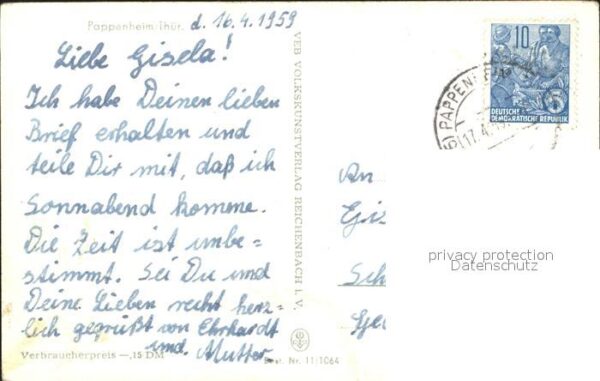 Pappenheim Thür. d. 16.4.1959
Liebe Gisela!
Ich habe Deinen lieben
Brief erhalten und
teile Dir mit, daß ich
Sonnabend komme.
Die Zeit ist unbe=
stimmt. Sei Du und
Deine Lieben recht herz-
lich gegrüßt von Ehrhardt
und. Mutter
Verbraucherpreis —,15 DM
Best. Nr. 11/1064
VEB VOLKSKUNSTVERLAG REICHENBACH I. V.
10
5
DEUTSCHE
DEMOKRATISCHE REPUBLIK
PAPPENH
17.4.
An
Gis
Sch
privacy protection
Datenschutz